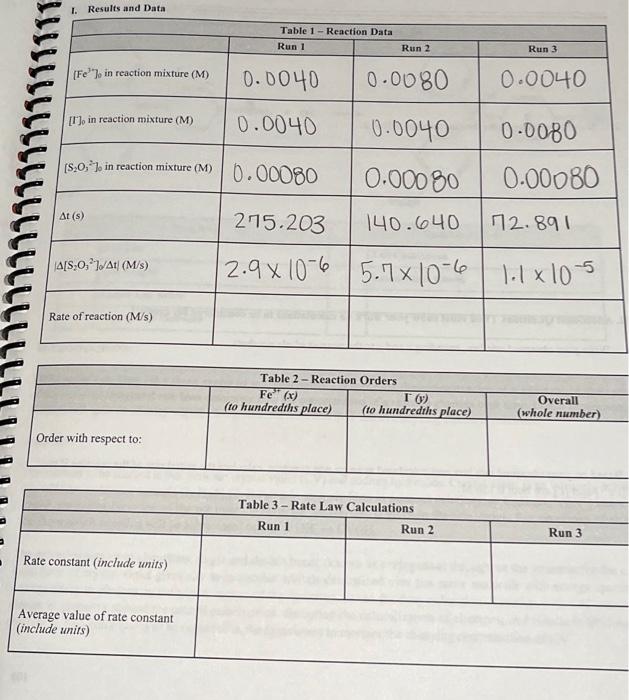 I. Results and Data
Table 1 – Reaction Data
Run 1 Run 2 Run 3
[Fe³⁺]₀ in reaction mixture (M) 0.0040 0.0080 0.0040
[I⁻]₀ in reaction mixture (M) 0.0040 0.0040 0.0080
[S₂O₃²⁻]₀ in reaction mixture (M) 0.00080 0.00080 0.00080
Δt (s) 275.203 140.640 72.891
|Δ[S₂O₃²⁻]₀/Δt| (M/s) 2.9 x 10⁻⁶ 5.7 x 10⁻⁶ 1.1 x 10⁻⁵
Rate of reaction (M/s)
Table 2 – Reaction Orders
Fe³⁺ (x) I⁻ (y) Overall
(to hundredths place) (to hundredths place) (whole number)
Order with respect to:
Table 3 – Rate Law Calculations
Run 1 Run 2 Run 3
Rate constant (include units)
Average value of rate constant
(include units)